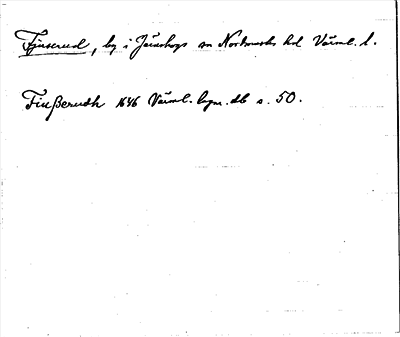 Fjuserud, by i Järnskogs sn Nordmarks hd Värml. l.
Fiußerudh 1646 Värml. lagm. db s. 50.